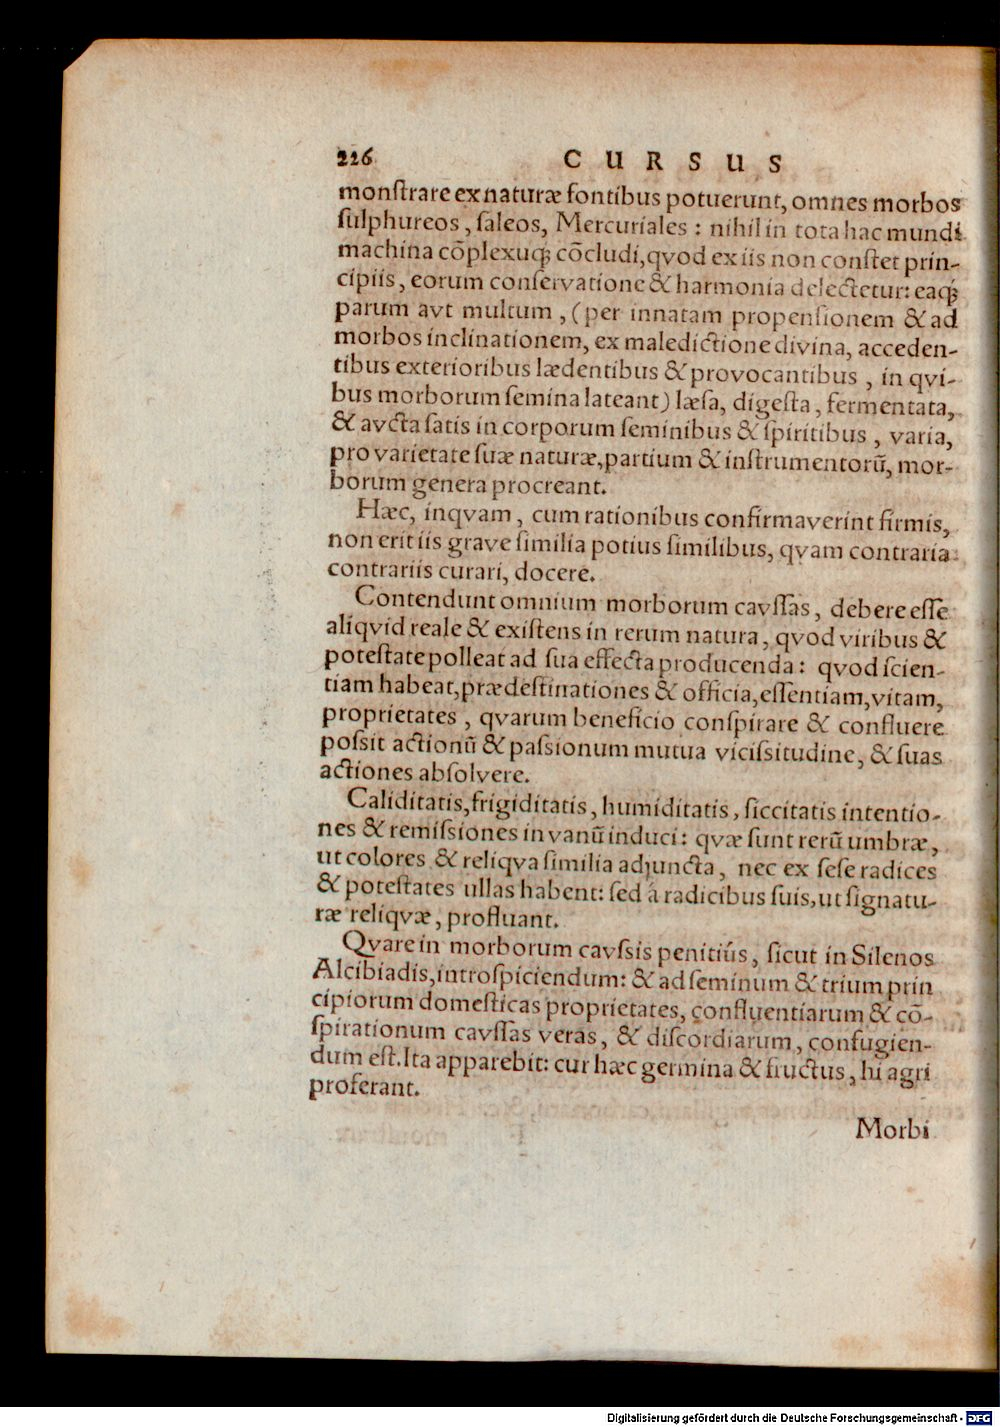 226 CURSUS
monſtrare ex naturæ fontibus potuerunt, omnes morbos
ſulphureos, ſaleos, Mercuriales: nihil in tota hac mundi
machina cõplexuq́; cõcludi, qvod ex iis non conſtet prin-
cipiis, eorum conſervatione & harmonia delectetur: eaq́;
parum avt multum, (per innatam propenſionem & ad
morbos inclinationem, ex maledictione divina, acceden-
tibus exterioribus lædentibus & provocantibus, in qvi-
bus morborum ſemina lateant) læſa, digeſta, fermentata,
& avcta ſatis in corporum ſeminibus & ſpiritibus, varia,
pro varietate ſuæ naturæ, partium & inſtrumentorũ, mor-
borum genera procreant.
Hæc, inqvam, cum rationibus confirmaverint firmis,
non erit iis grave ſimilia potius ſimilibus, qvam contraria
contrariis curari, docere.
Contendunt omnium morborum cavſſas, debere eſſe
aliqvid reale & exiſtens in rerum natura, qvod viribus &
poteſtate polleat ad ſua effecta producenda: qvod ſcien-
tiam habeat, prædeſtinationes & officia, eſſentiam, vitam,
proprietates, qvarum beneficio conſpirare & confluere
poſsit actionũ & paſsionum mutua viciſsitudine, & ſuas
actiones abſolvere.
Caliditatis, frigiditatis, humiditatis, ſiccitatis intentio-
nes & remiſsiones in vanũ induci: qvæ ſunt rerũ umbræ,
ut colores & reliqva ſimilia adjuncta, nec ex ſeſe radices
& poteſtates ullas habent: ſed á radicibus ſuis, ut ſignatu-
ræ reliqvæ, profluant.
Qvare in morborum cavſsis penitiús, ſicut in Silenos
Alcibiadis, introſpiciendum: & ad ſeminum & trium prin
cipiorum domeſticas proprietates, confluentiarum & cõ-
ſpirationum cavſſas veras, & diſcordiarum, confugien-
dum eſt. Ita apparebit: cur hæc germina & fructus, hi agri
proferant.
Morbi
Digitalisierung gefördert durch die Deutsche Forschungsgemeinschaft - DFG